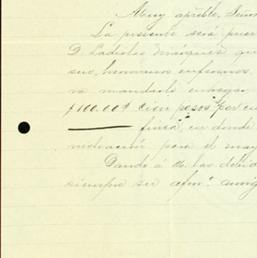 Muy apreble. Señor
La presente será pues
D. Ladislao Márquez qu
sus hermanos enfermos,
va mandarle entregar
$100.00 Cien pesos por cu
finca, en donde
para el may
Dando á U. las debid
siempre su afmo. amig